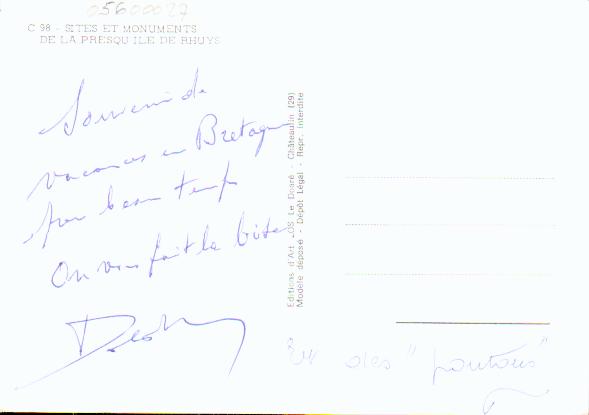 05600027
C 98 - SITES ET MONUMENTS
DE LA PRESQU'ILE DE RHUYS
Souvenir de
vacances en Bretagne
par beau temps
On vous fait la bise
Editions d'Art JOS Le Doaré - Châteaulin (29)
Modèle déposé - Dépôt Légal - Repr. Interdite
des "pontons"